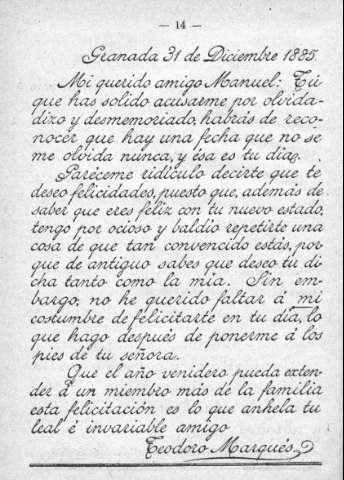 — 14 —
Granada 31 de Diciembre 1885.
Mi querido amigo Manuel: Tú
que has solido acusarme por olvida-
dizo y desmemoriado, habrás de reco-
nocer que hay una fecha que no se
me olvida nunca, y esa es tu dia.
Paréceme ridículo decirte que te
deseo felicidades, puesto que, además de
saber que eres feliz con tu nuevo estado,
tengo por ocioso y baldío repetirte una
cosa de que tan convencido estás, por
que de antiguo sabes que deseo tu di
cha tanto como la mia. Sin em-
bargo, no he querido faltar á mi
costumbre de felicitarte en tu dia, lo
que hago después de ponerme á los
pies de tu señora.
Que el año venidero pueda exten-
der á un miembro más de la familia
esta felicitación es lo que anhela tu
leal é invariable amigo
Teodoro Marqués